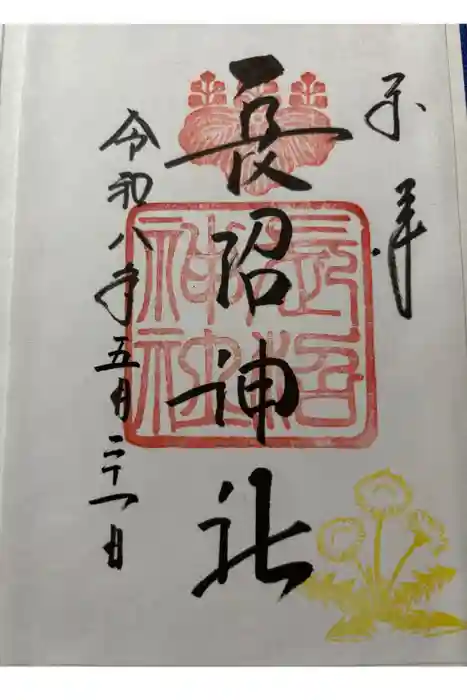 奉拝
長沼神社
長沼神社
令和八年五月二十一日